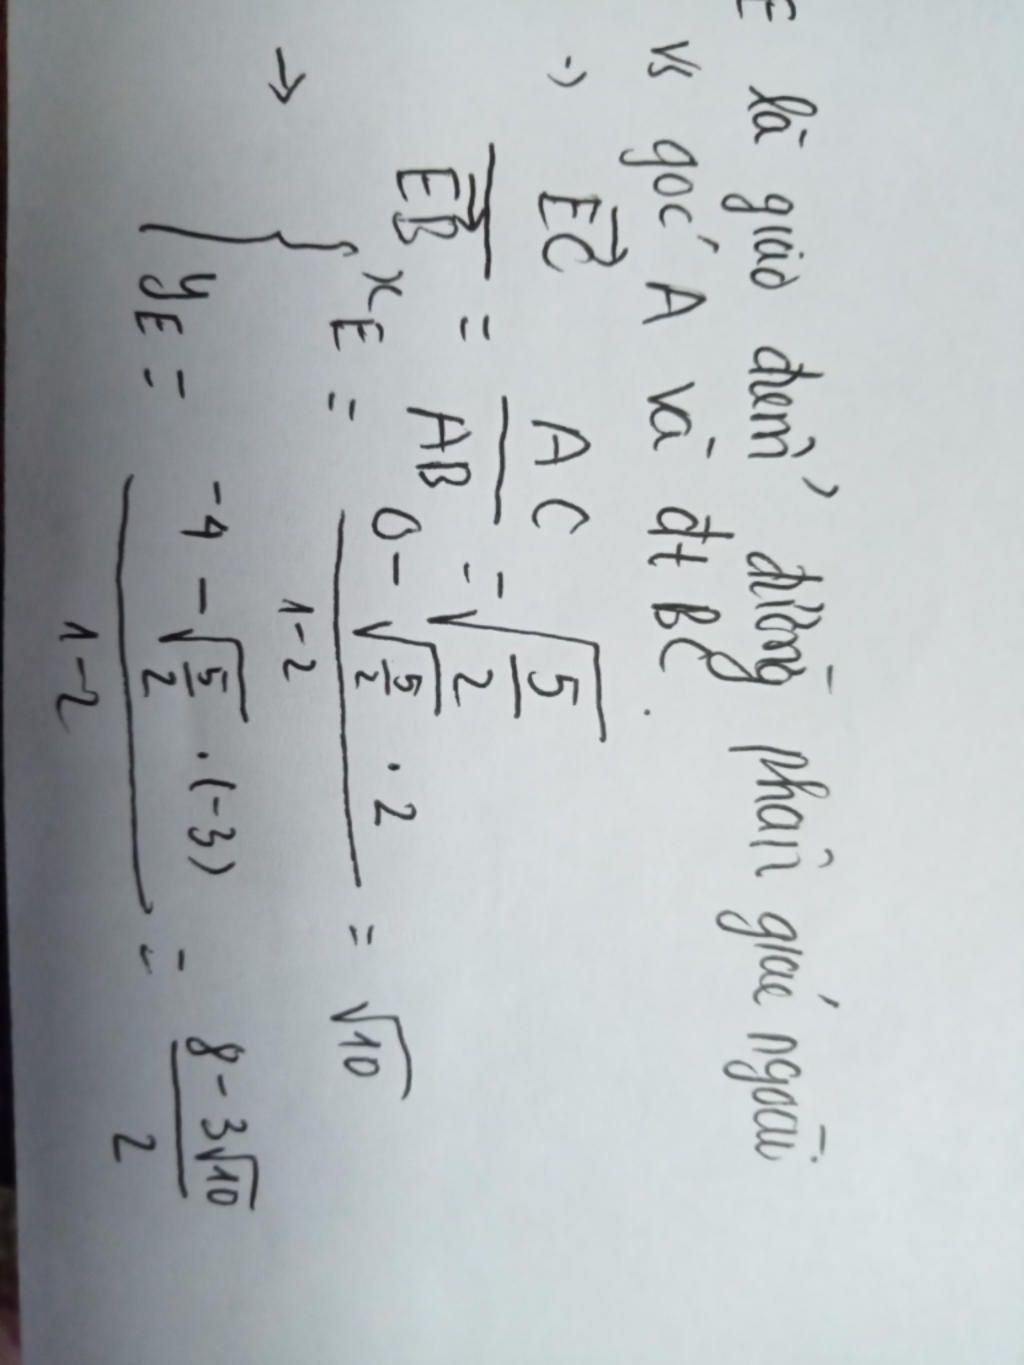 E là giao điểm đường phân giác ngoài
vs góc A và đt BC.
→ EC→ / EB→ = AC / AB = √(5/2)
→ { x_E = (0 - √(5/2) . 2) / (1-2) = √10
y_E = (-4 - √(5/2) . (-3)) / (1-2) = (8 - 3√10) / 2